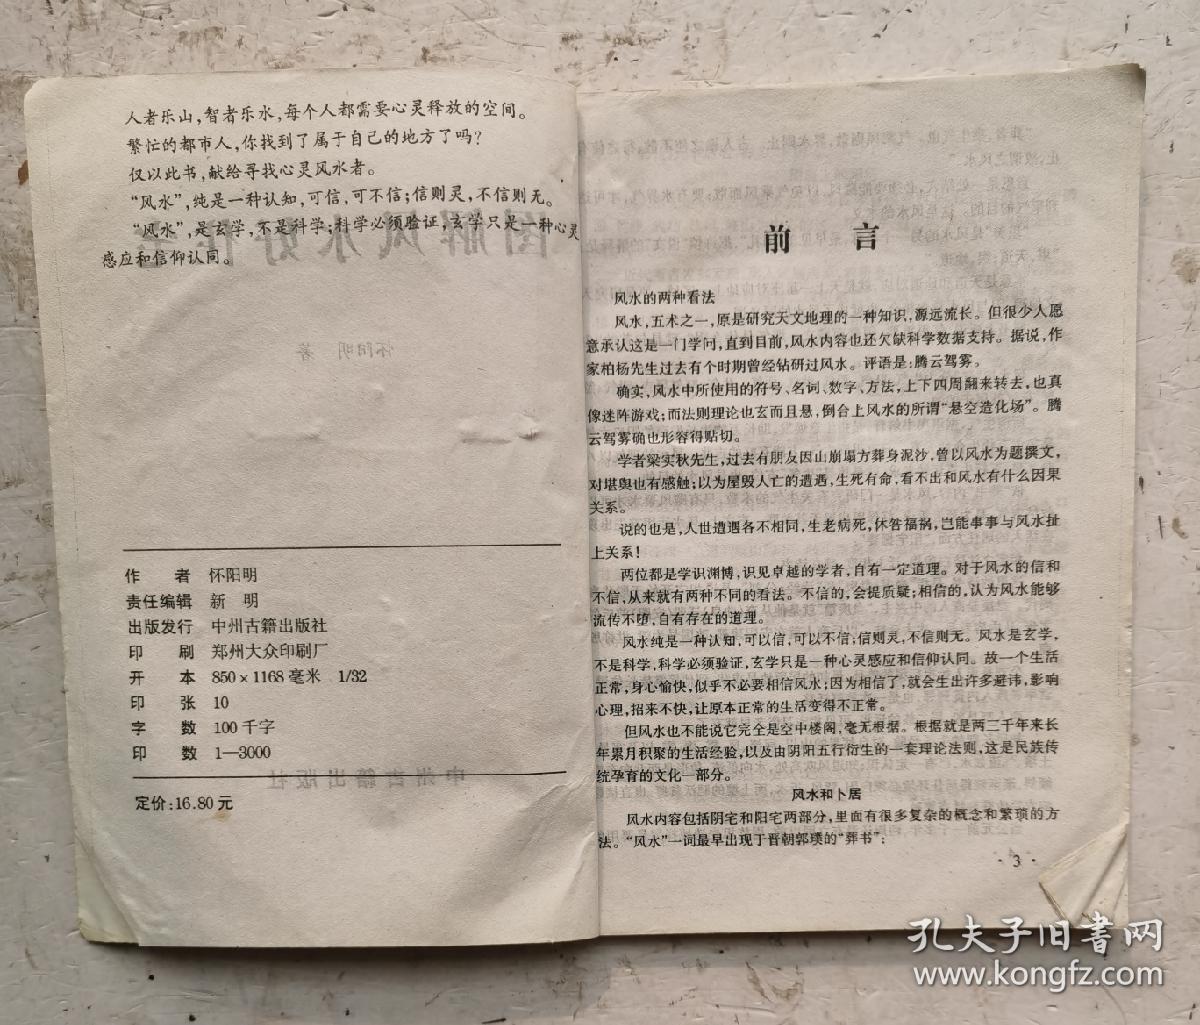 人者乐山,智者乐水,每个人都需要心灵释放的空间。
繁忙的都市人,你找到了属于自己的地方了吗?
仅以此书,献给寻找心灵风水者。
“风水”,纯是一种认知,可信,可不信;信则灵,不信则无。
“风水”,是玄学,不是科学;科学必须验证,玄学只是一种心灵
感应和信仰认同。
作 者 怀阳明
责任编辑 新 明
出版发行 中州古籍出版社
印 刷 郑州大众印刷厂
开 本 850×1168毫米 1/32
印 张 10
字 数 100千字
印 数 1—3000
定价:16.80元
前 言
风水的两种看法
风水,五术之一,原是研究天文地理的一种知识,源远流长。但很少人愿
意承认这是一门学问,直到目前,风水内容也还欠缺科学数据支持。据说,作
家柏杨先生过去有个时期曾经钻研过风水。评语是:腾云驾雾。
确实,风水中所使用的符号、名词、数字、方法,上下四周翻来转去,也真
像迷阵游戏;而法则理论也玄而且悬,倒合上风水的所谓“悬空造化场”。腾
云驾雾确也形容得贴切。
学者梁实秋先生,过去有朋友因山崩塌方葬身泥沙,曾以风水为题撰文,
对堪舆也有感触;以为屋毁人亡的遭遇,生死有命,看不出和风水有什么因果
关系。
说的也是,人世遭遇各不相同,生老病死,休咎福祸,岂能事事与风水扯
上关系!
两位都是学识渊博,识见卓越的学者,自有一定道理。对于风水的信和
不信,从来就有两种不同的看法。不信的,会提质疑;相信的,认为风水能够
流传不堕,自有存在的道理。
风水纯是一种认知,可以信,可以不信;信则灵,不信则无。风水是玄学,
不是科学,科学必须验证,玄学只是一种心灵感应和信仰认同。故一个生活
正常,身心愉快,似乎不必要相信风水;因为相信了,就会生出许多避讳,影响
心理,招来不快,让原本正常的生活变得不正常。
但风水也不能说它完全是空中楼阁,毫无根据。根据就是两三千年来长
年累月积聚的生活经验,以及由阴阳五行衍生的一套理论法则,这是民族传
统孕育的文化一部分。
风水和卜居
风水内容包括阴宅和阳宅两部分,里面有很多复杂的概念和繁琐的方
法。“风水”一词最早出现于晋朝郭璞的“葬书”:
·3·
孔夫子旧书网
www.kongfz.com